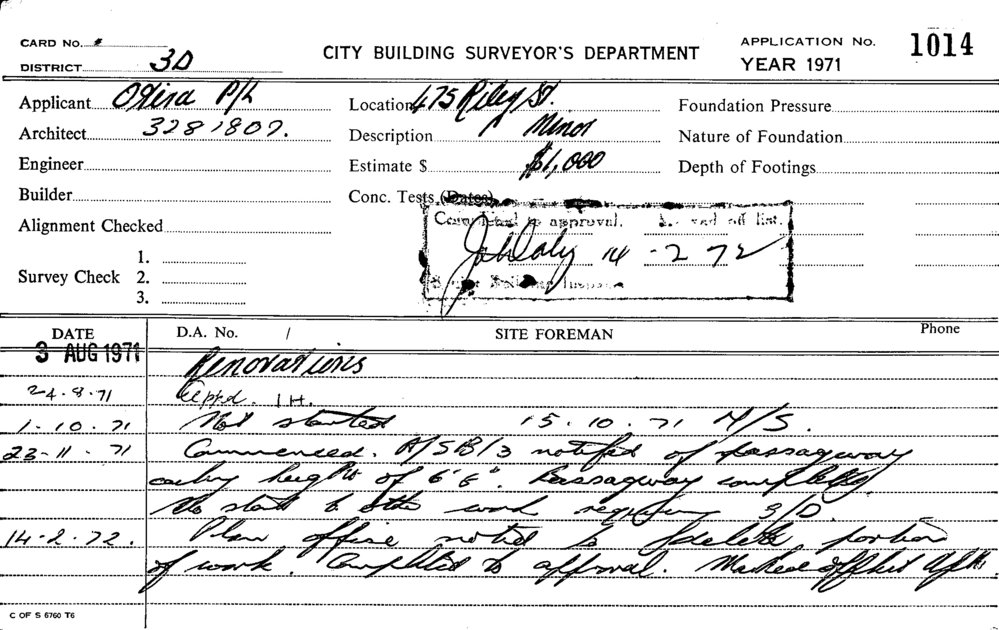 CARD No. #
DISTRICT 3D
CITY BUILDING SURVEYOR'S DEPARTMENT
APPLICATION No. 1014
YEAR 1971
Applicant P/L
Architect 3281807.
Engineer
Builder
Alignment Checked
Survey Check 1.
2.
3.
Location 475 Riley St.
Description Minor
Estimate $ $1,000
Conc. Tests (Dates)
Foundation Pressure
Nature of Foundation
Depth of Footings
Completed to approval. off list.
14 - 2 72
Building
DATE D.A. No. / SITE FOREMAN Phone
3 AUG 1971 Renovations
24.8.71 Appd. I H.
1.10.71 Not started 15.10.71 N/S.
23-11-71 Commenced. A/SB/3 notified of passagway
height of 6'6". Passagway
No start to other work 3/D
14.2.72. Plan office noted to delete portion
of work. Completed to approval. Marked off list
C OF S 6760 T6